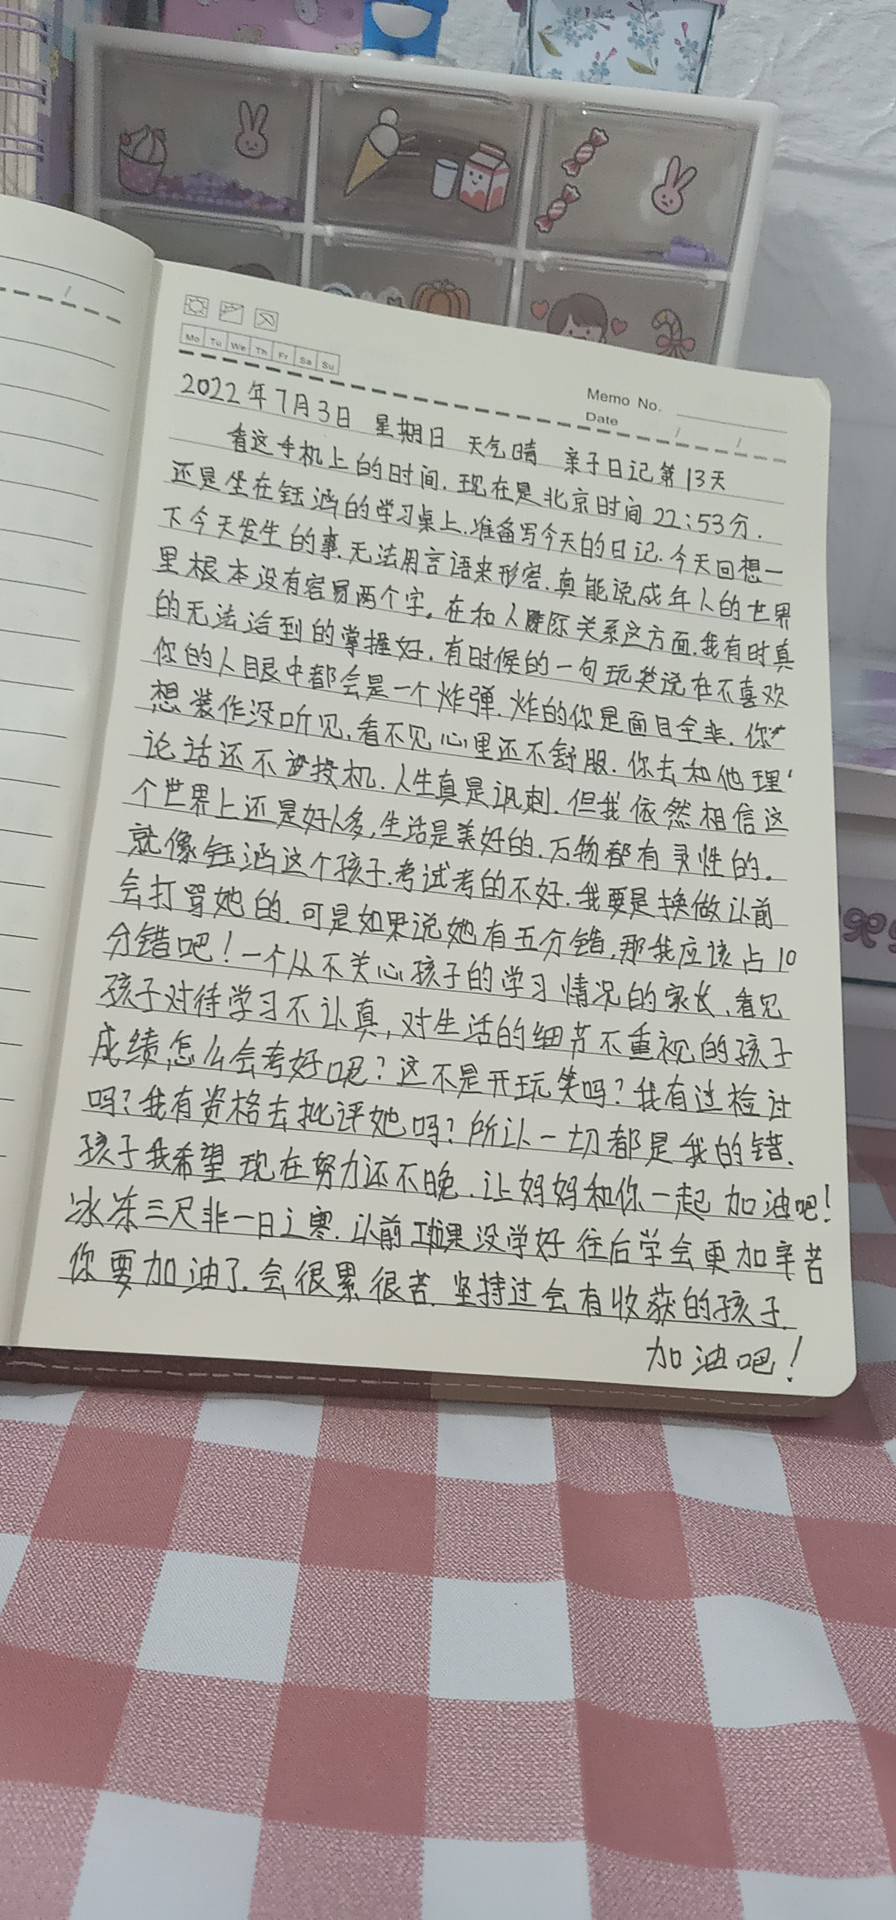 Mo Tu We Th Fr Sa Su
Memo No.
Date
2022年7月3日 星期日 天气晴 亲子日记第13天
看这手机上的时间.现在是北京时间22:53分.
还是坐在钰涵的学习桌上.准备写今天的日记.今天回想一
下今天发生的事.无法用言语来形容.真能说成年人的世界
里根本没有容易两个字。在和人际关系这方面.我有时真
的无法洽到的掌握好.有时候的一句玩笑说在不喜欢
你的人眼中都会是一个炸弹.炸的你是面目全非.你
想装作没听见,看不见心里还不舒服.你去和他理
论话还不投机.人生真是讽刺.但我依然相信这
个世界上还是好人多,生活是美好的.万物都有灵性的。
就像钰涵这个孩子.考试考的不好.我要是换做以前
会打骂她的.可是如果说她有五分错,那我应该占10
分错吧!一个从不关心孩子的学习情况的家长,看见
孩子对待学习不认真,对生活的细节不重视的孩子
成绩怎么会考好呢?这不是开玩笑吗?我有过检讨
吗?我有资格去批评她吗?所以一切都是我的错.
孩子我希望现在努力还不晚.让妈妈和你一起加油吧!
冰冻三尺非一日之寒.以前功课没学好往后学会更加辛苦
你要加油了.会很累很苦.坚持过会有收获的孩子.
加油吧!